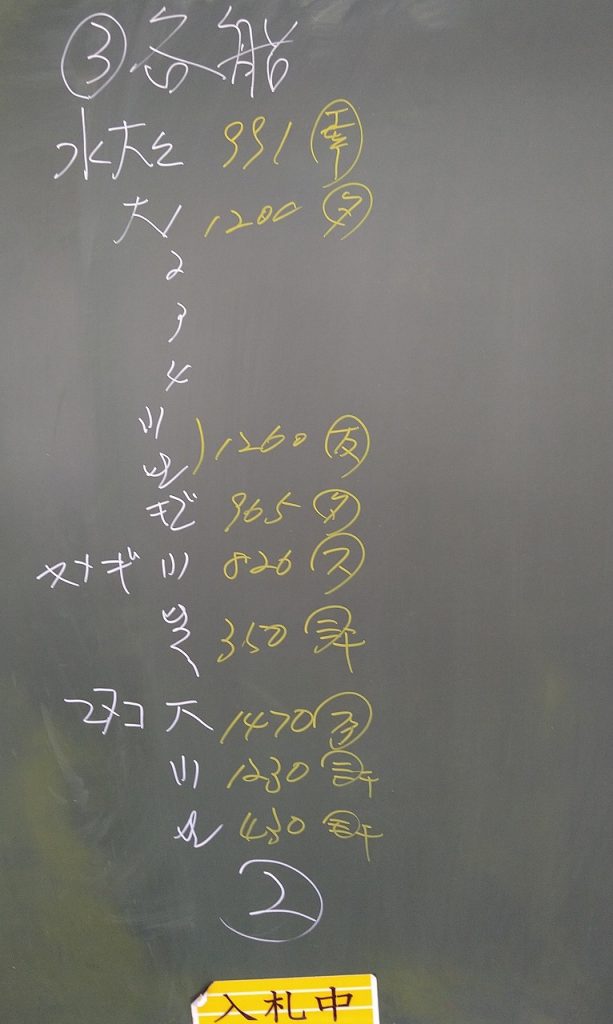 ③各船
水大々 991
大1 1200 夕
2
3
4
小
1260 友
キビ 965 夕
ヌメギ 小 826 ス
350 許
マダコ 大 1470
小 1230 許
430 許
②
入札中